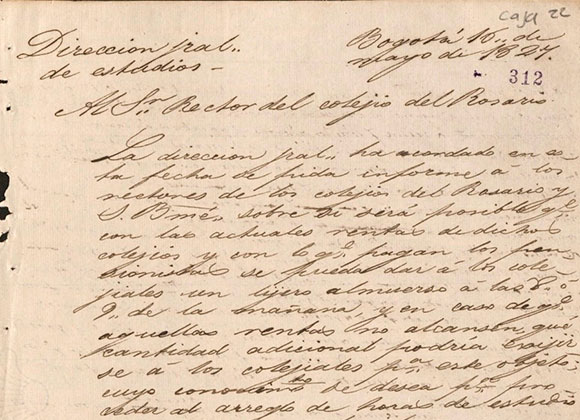 caja 22
Direccion jral..
de estudios -
Bogotá 10.. de
mayo de 1827.
312
Al Sr. Rector del colejio del Rosario
La direccion jral.. ha acordado en es-
ta fecha se pida informe a los
rectores de los colejios del Rosario y
S. Bme. sobre si será posible qe.
con las actuales rentas de dichos
colejios y con lo qe. pagan los pen-
sionistas se pueda dar á los cole-
jiales un lijero almuerso á las 8. ó
9. de la mañana, y en caso de qe.
aquellas rentas no alcansen, que
cantidad adicional podría exijir
se á los colejiales pa. este objeto
cuyo conocimto. se desea pa. pro-
ceder al arreglo de horas de estudio